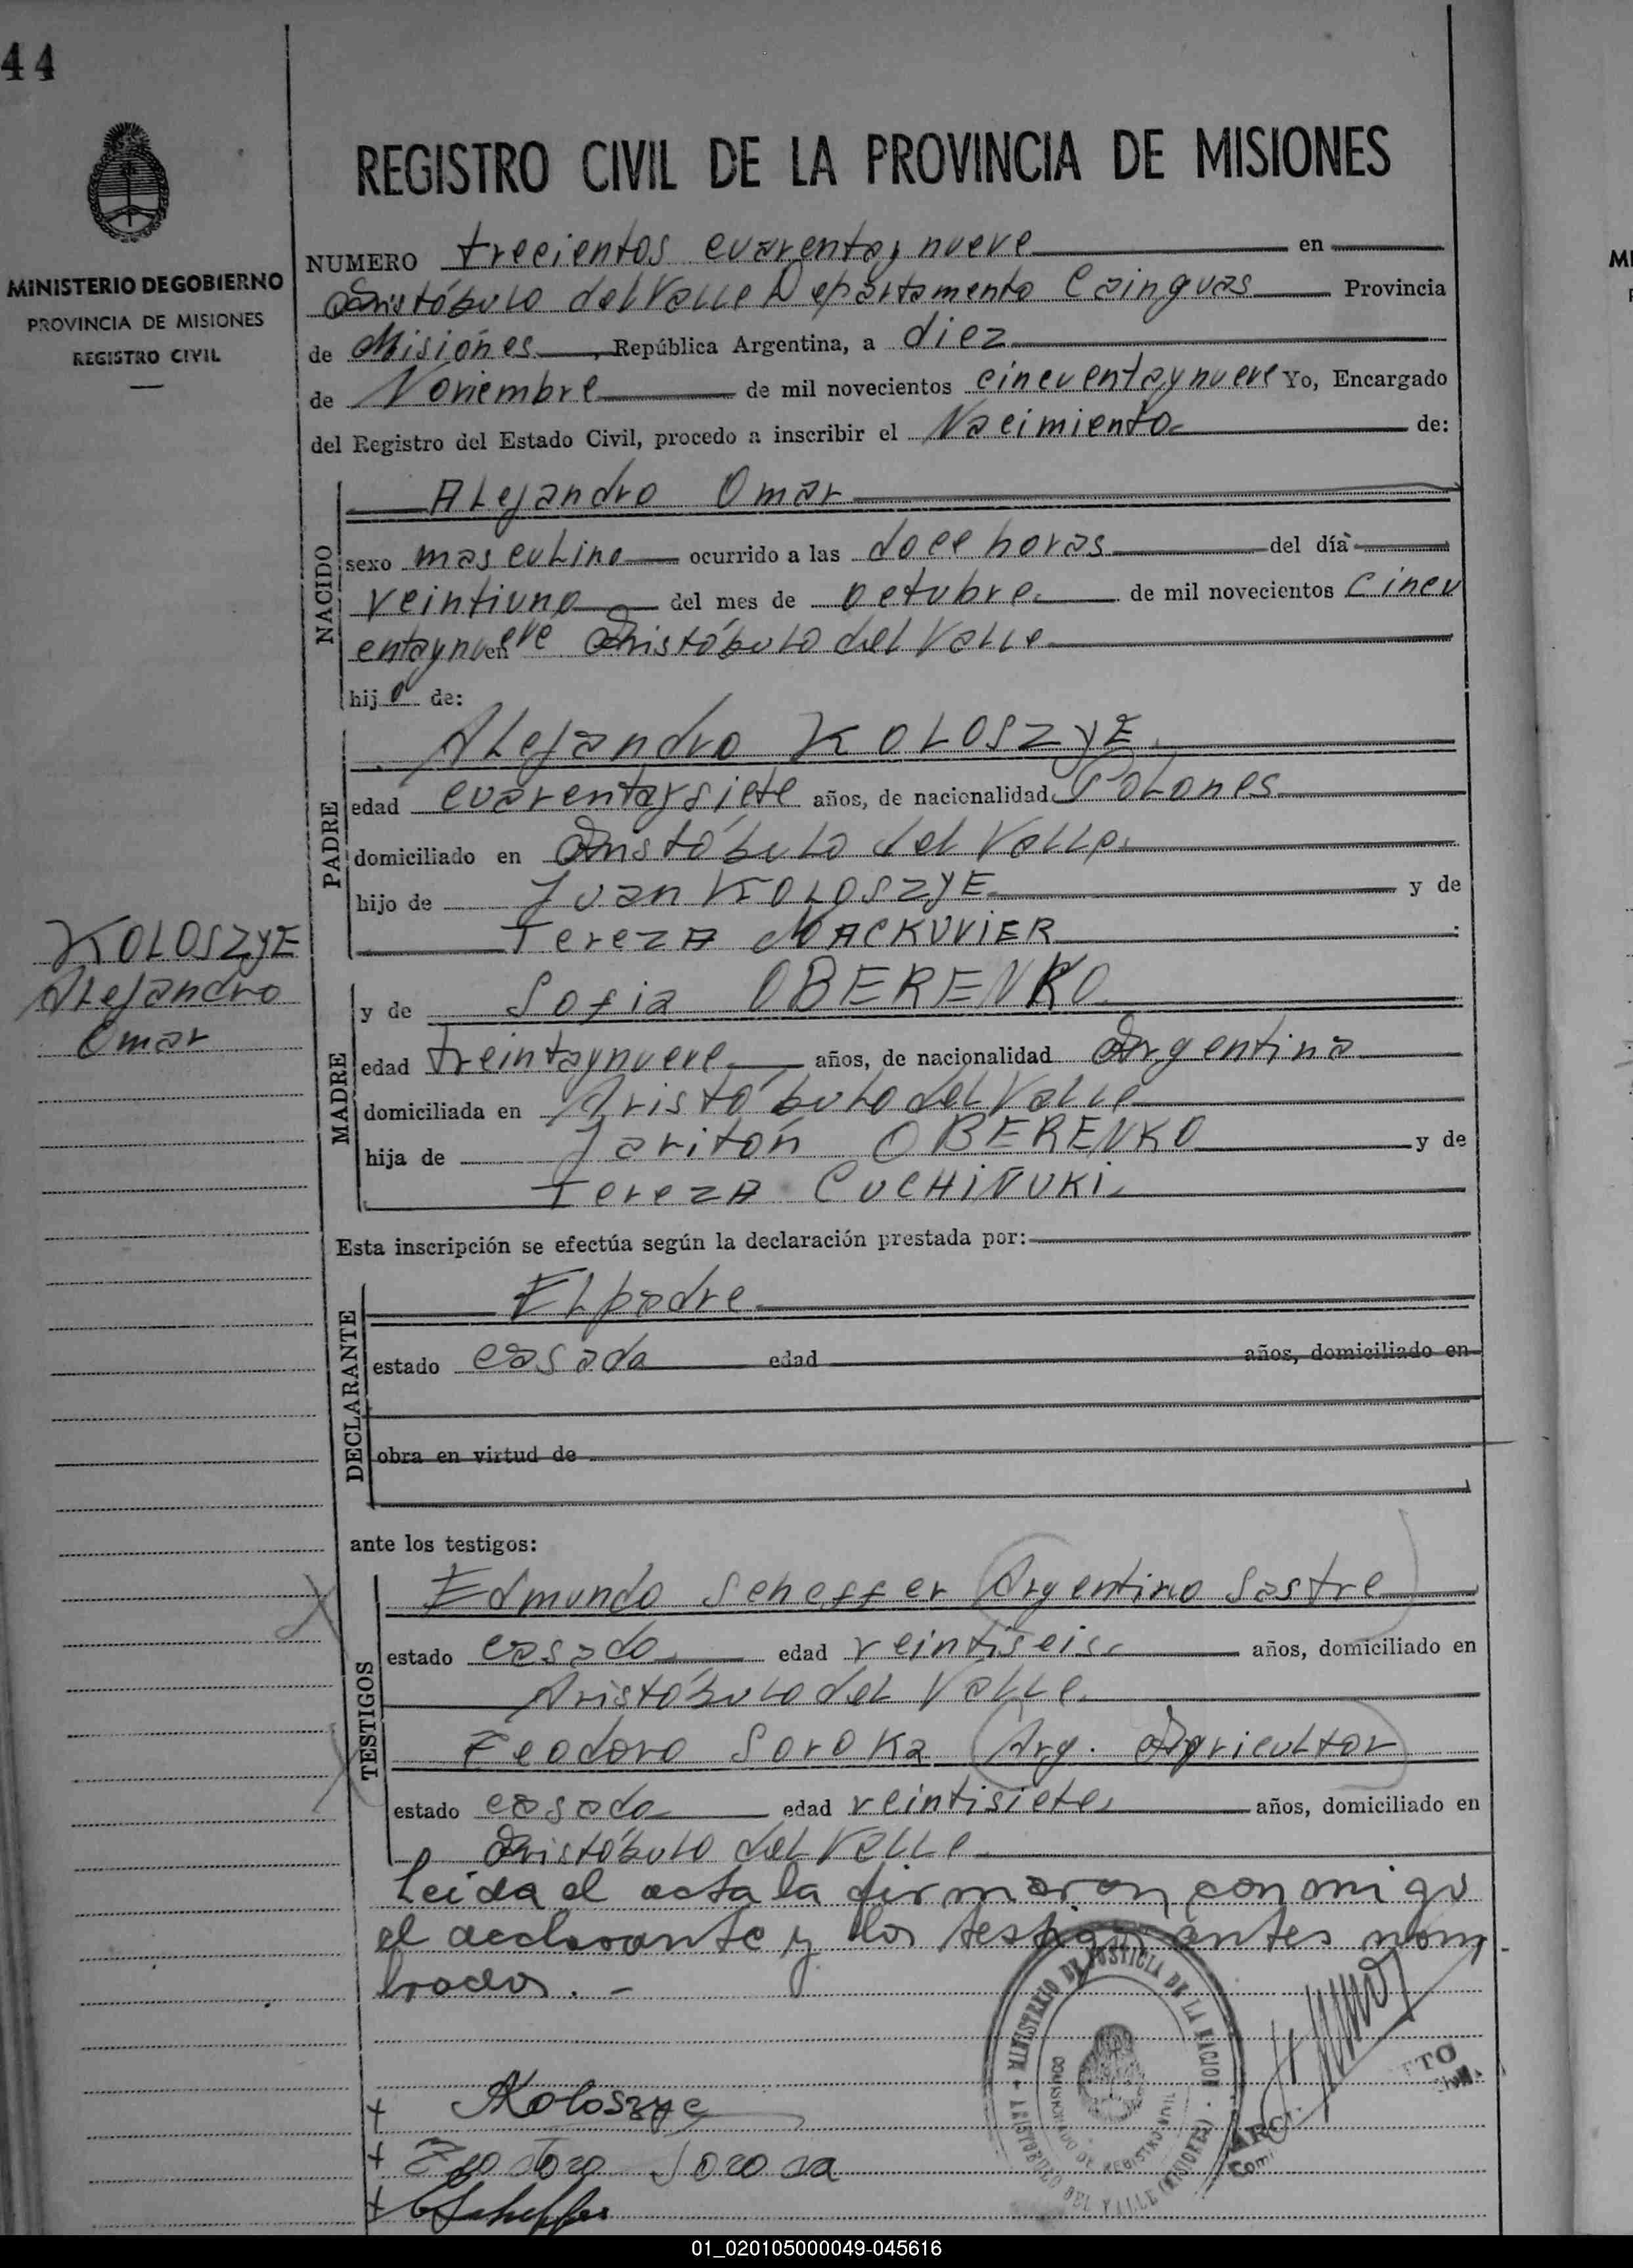 44
MINISTERIO DE GOBIERNO
PROVINCIA DE MISIONES
REGISTRO CIVIL
REGISTRO CIVIL DE LA PROVINCIA DE MISIONES
NUMERO trecientos cuarentay nueve en
Aristóbulo del Valle Departamento Cainguas Provincia
de Misiónes, República Argentina, a diez
de Noviembre de mil novecientos cincuentaynueve Yo, Encargado
del Registro del Estado Civil, procedo a inscribir el Nacimiento de:
NACIDO
Alejandro Omar
sexo masculino ocurrido a las doce horas del día
veintiuno del mes de octubre. de mil novecientos Cincu
entaynueve en Aristóbulo del Valle
hijo de:
PADRE
Alejandro KOLOSZYE
edad cuarentaysiete años, de nacionalidad Polones
domiciliado en Aristóbulo del Valle.
hijo de Juan KOLOSZYE y de
TerezA MACKUVIER
KOLOSZYE
Alejandro
Omar
MADRE
y de Sofia OBERENKO
edad treintaynueve años, de nacionalidad Argentina
domiciliada en Aristóbulo del Valle
hija de Jaritón OBERENKO y de
TerezA CUCHIÑUKI
Esta inscripción se efectúa según la declaración prestada por:
DECLARANTE
El padre
estado casado edad años, domiciliado en
obra en virtud de
ante los testigos:
TESTIGOS
Edmundo Scheffer (Argentino Sastre)
estado casado edad veintiseis. años, domiciliado en
Aristóbulo del Valle.
Teodoro Soroka (Arg. Agricultor)
estado casado edad veintisiete, años, domiciliado en
Aristóbulo del Valle
Leida el acta la firmaron conmigo
el declarante y los testigos antes nom
brados. -
MINISTERIO DE JUSTICIA DE LA NACION
ARISTOBULO DEL VALLE (MISIONES)
+ Koloszye
+ Teodoro
+ EScheffer
01_020105000049-045616